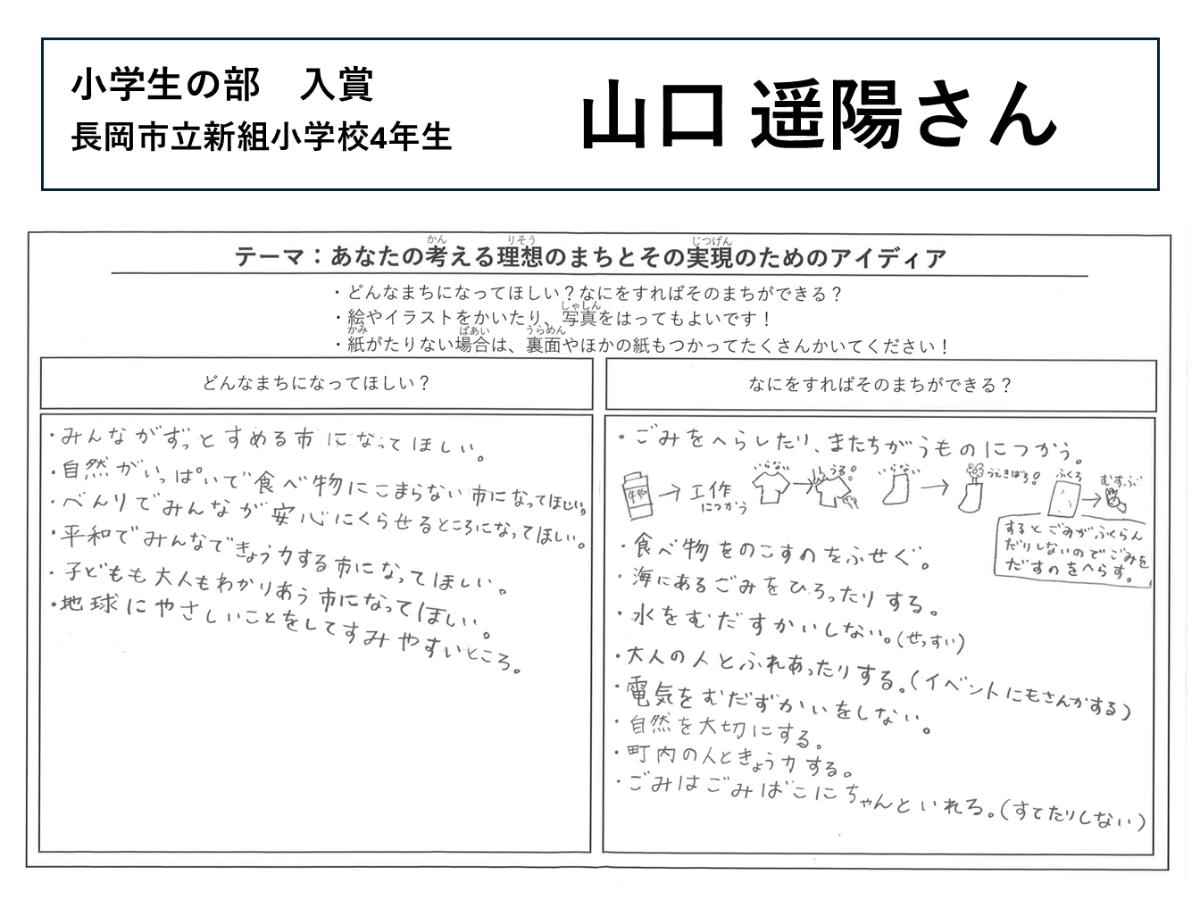 小学生の部　入賞
長岡市立新組小学校4年生
山口 遥陽さん
テーマ：あなたの考える理想のまちとその実現のためのアイディア
かん
りそう
じつげん
・どんなまちになってほしい？なにをすればそのまちができる？
・絵やイラストをかいたり、写真をはってもよいです！
しゃしん
・紙がたりない場合は、裏面やほかの紙もつかってたくさんかいてください！
かみ
ばあい
うらめん
どんなまちになってほしい？
・みんながずっとすめる市になってほしい。
・自然がいっぱいで食べ物にこまらない市になってほしい。
・べんりでみんなが安心にくらせるところになってほしい。
・平和でみんなできょう力する市になってほしい。
・子どもも大人もわかりあう市になってほしい。
・地球にやさしいことをしてすみやすいところ。
なにをすればそのまちができる？
・ごみをへらしたり、またちがうものにつかう。
牛乳
→工作
につかう
いらない
→
うる!
いらない
→
うえきばち!
ふくろ
→
むすぶ
するとごみがふくらん
だりしないのでごみを
だすのをへらす。
・食べ物をのこすのをふせぐ。
・海にあるごみをひろったりする。
・水をむだすかいしない。(せっすい)
・大人の人とふれあったりする。(イベントにもさんかする)
・電気をむだずかいをしない。
・自然を大切にする。
・町内の人ときょう力する。
・ごみはごみばこにちゃんといれる。(すてたりしない)